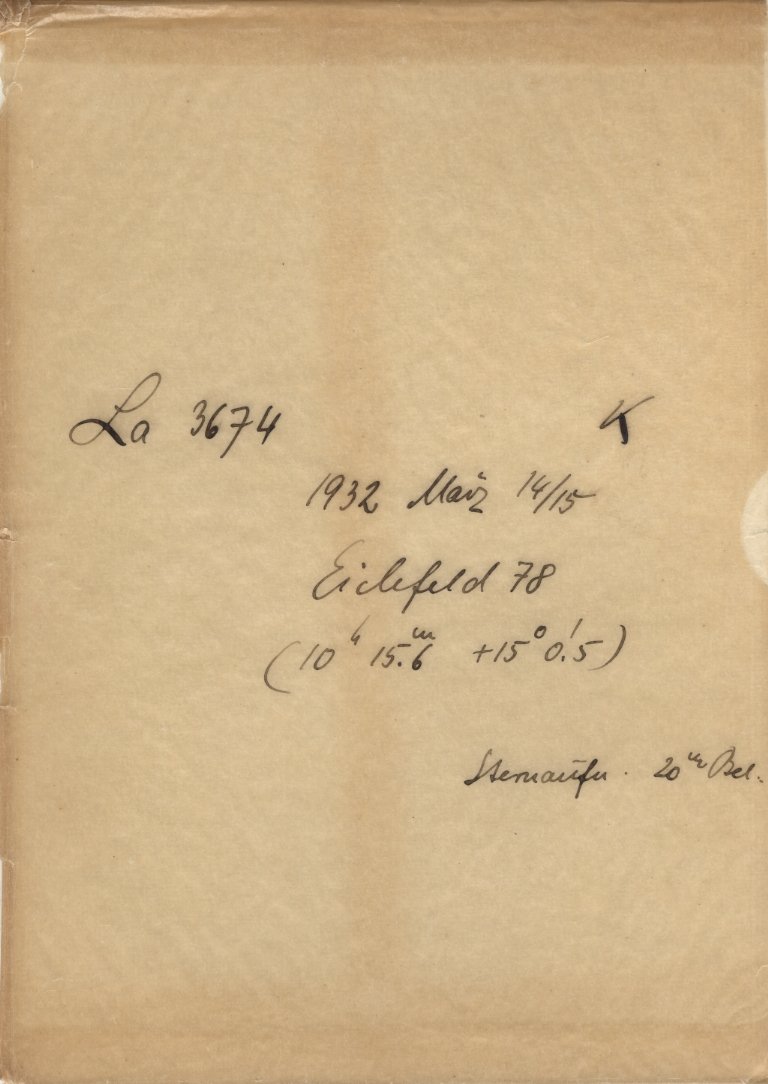 La 3674 K
1932 März 14/15
Eichfeld 78
(10ʰ 15.ᵐ6 +15° 0.′5)
Sternaufn. 20ᵐ Bel.